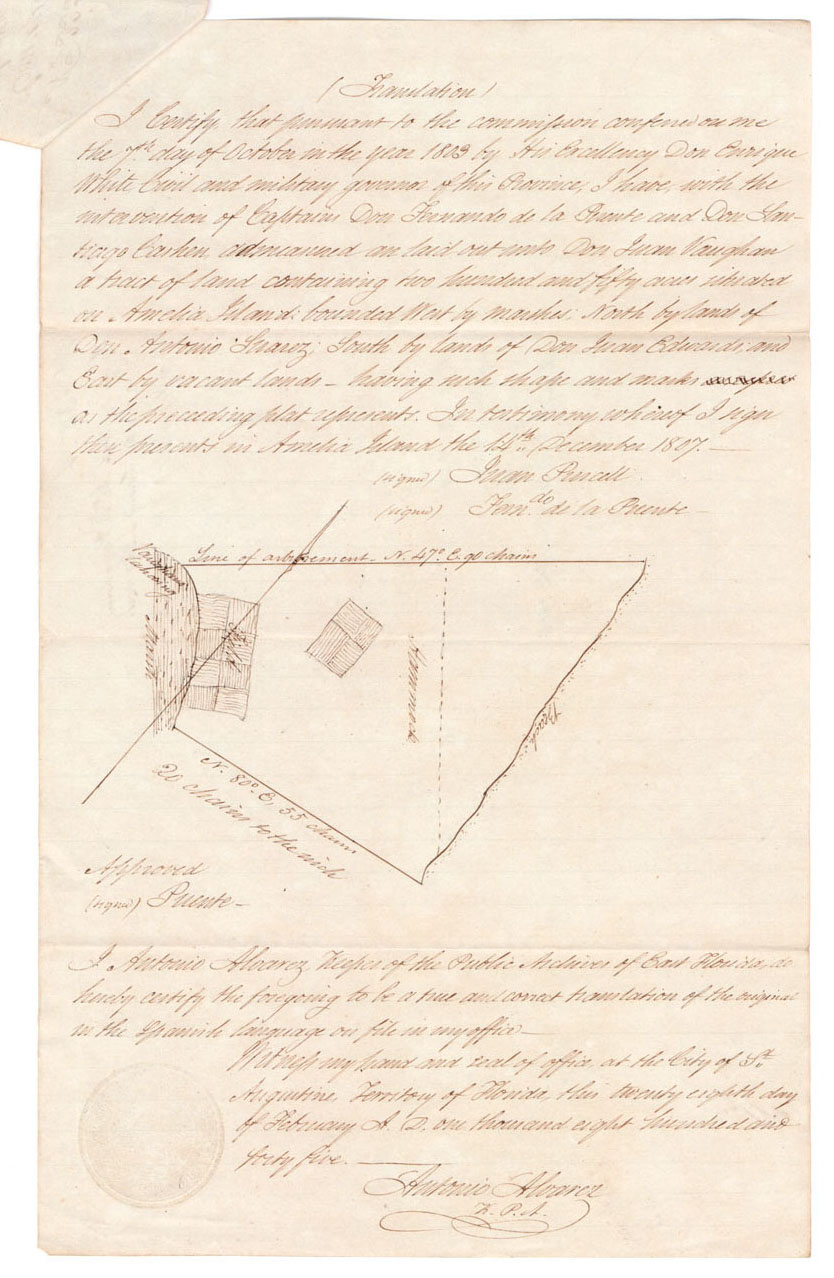 (Translation)
I Certify that pursuant to the commission confered on me
the 7th day of October in the year 1803 by His Excellency Don Enrique
White Civil and military governor of this Province, I have, with the
intervention of Captains Don Fernando de la Puente and Don San-
tiago Cashen, admeasured an laid out unto Don Juan Vaughan
a tract of land containing two hundred and fifty acres situated
on Amelia Island: bounded West by marshes: North by lands of
Don Antonio Suarez; South by lands of Don Juan Edwards; and
East by vacant lands – having such shape and marks
as the preceding plat represents. In testimony whereof I sign
these presents in Amelia Island the 14th December 1807. –
(signed) Juan Purcell.
(signed) Fern.do de la Puente –
Vaughans
Landing
Line of arbisement – N. 47° E. 90 chain
Marsh
Field
Hammock
Beach
N. 80° E, 55 chain
20 chains to the inch
Approved
(signed) Puente –
I Antonio Alvarez Keeper of the Public Archives of East Florida, do
hereby certify the foregoing to be a true and correct translation of the original
in the Spanish language on file in my office –
Witness my hand and seal of office, at the City of St.
Augustine, Territory of Florida, this twenty eighth day
of February A. D. one thousand eight hundred and
forty five. –
Antonio Alvarez
K. P. A.